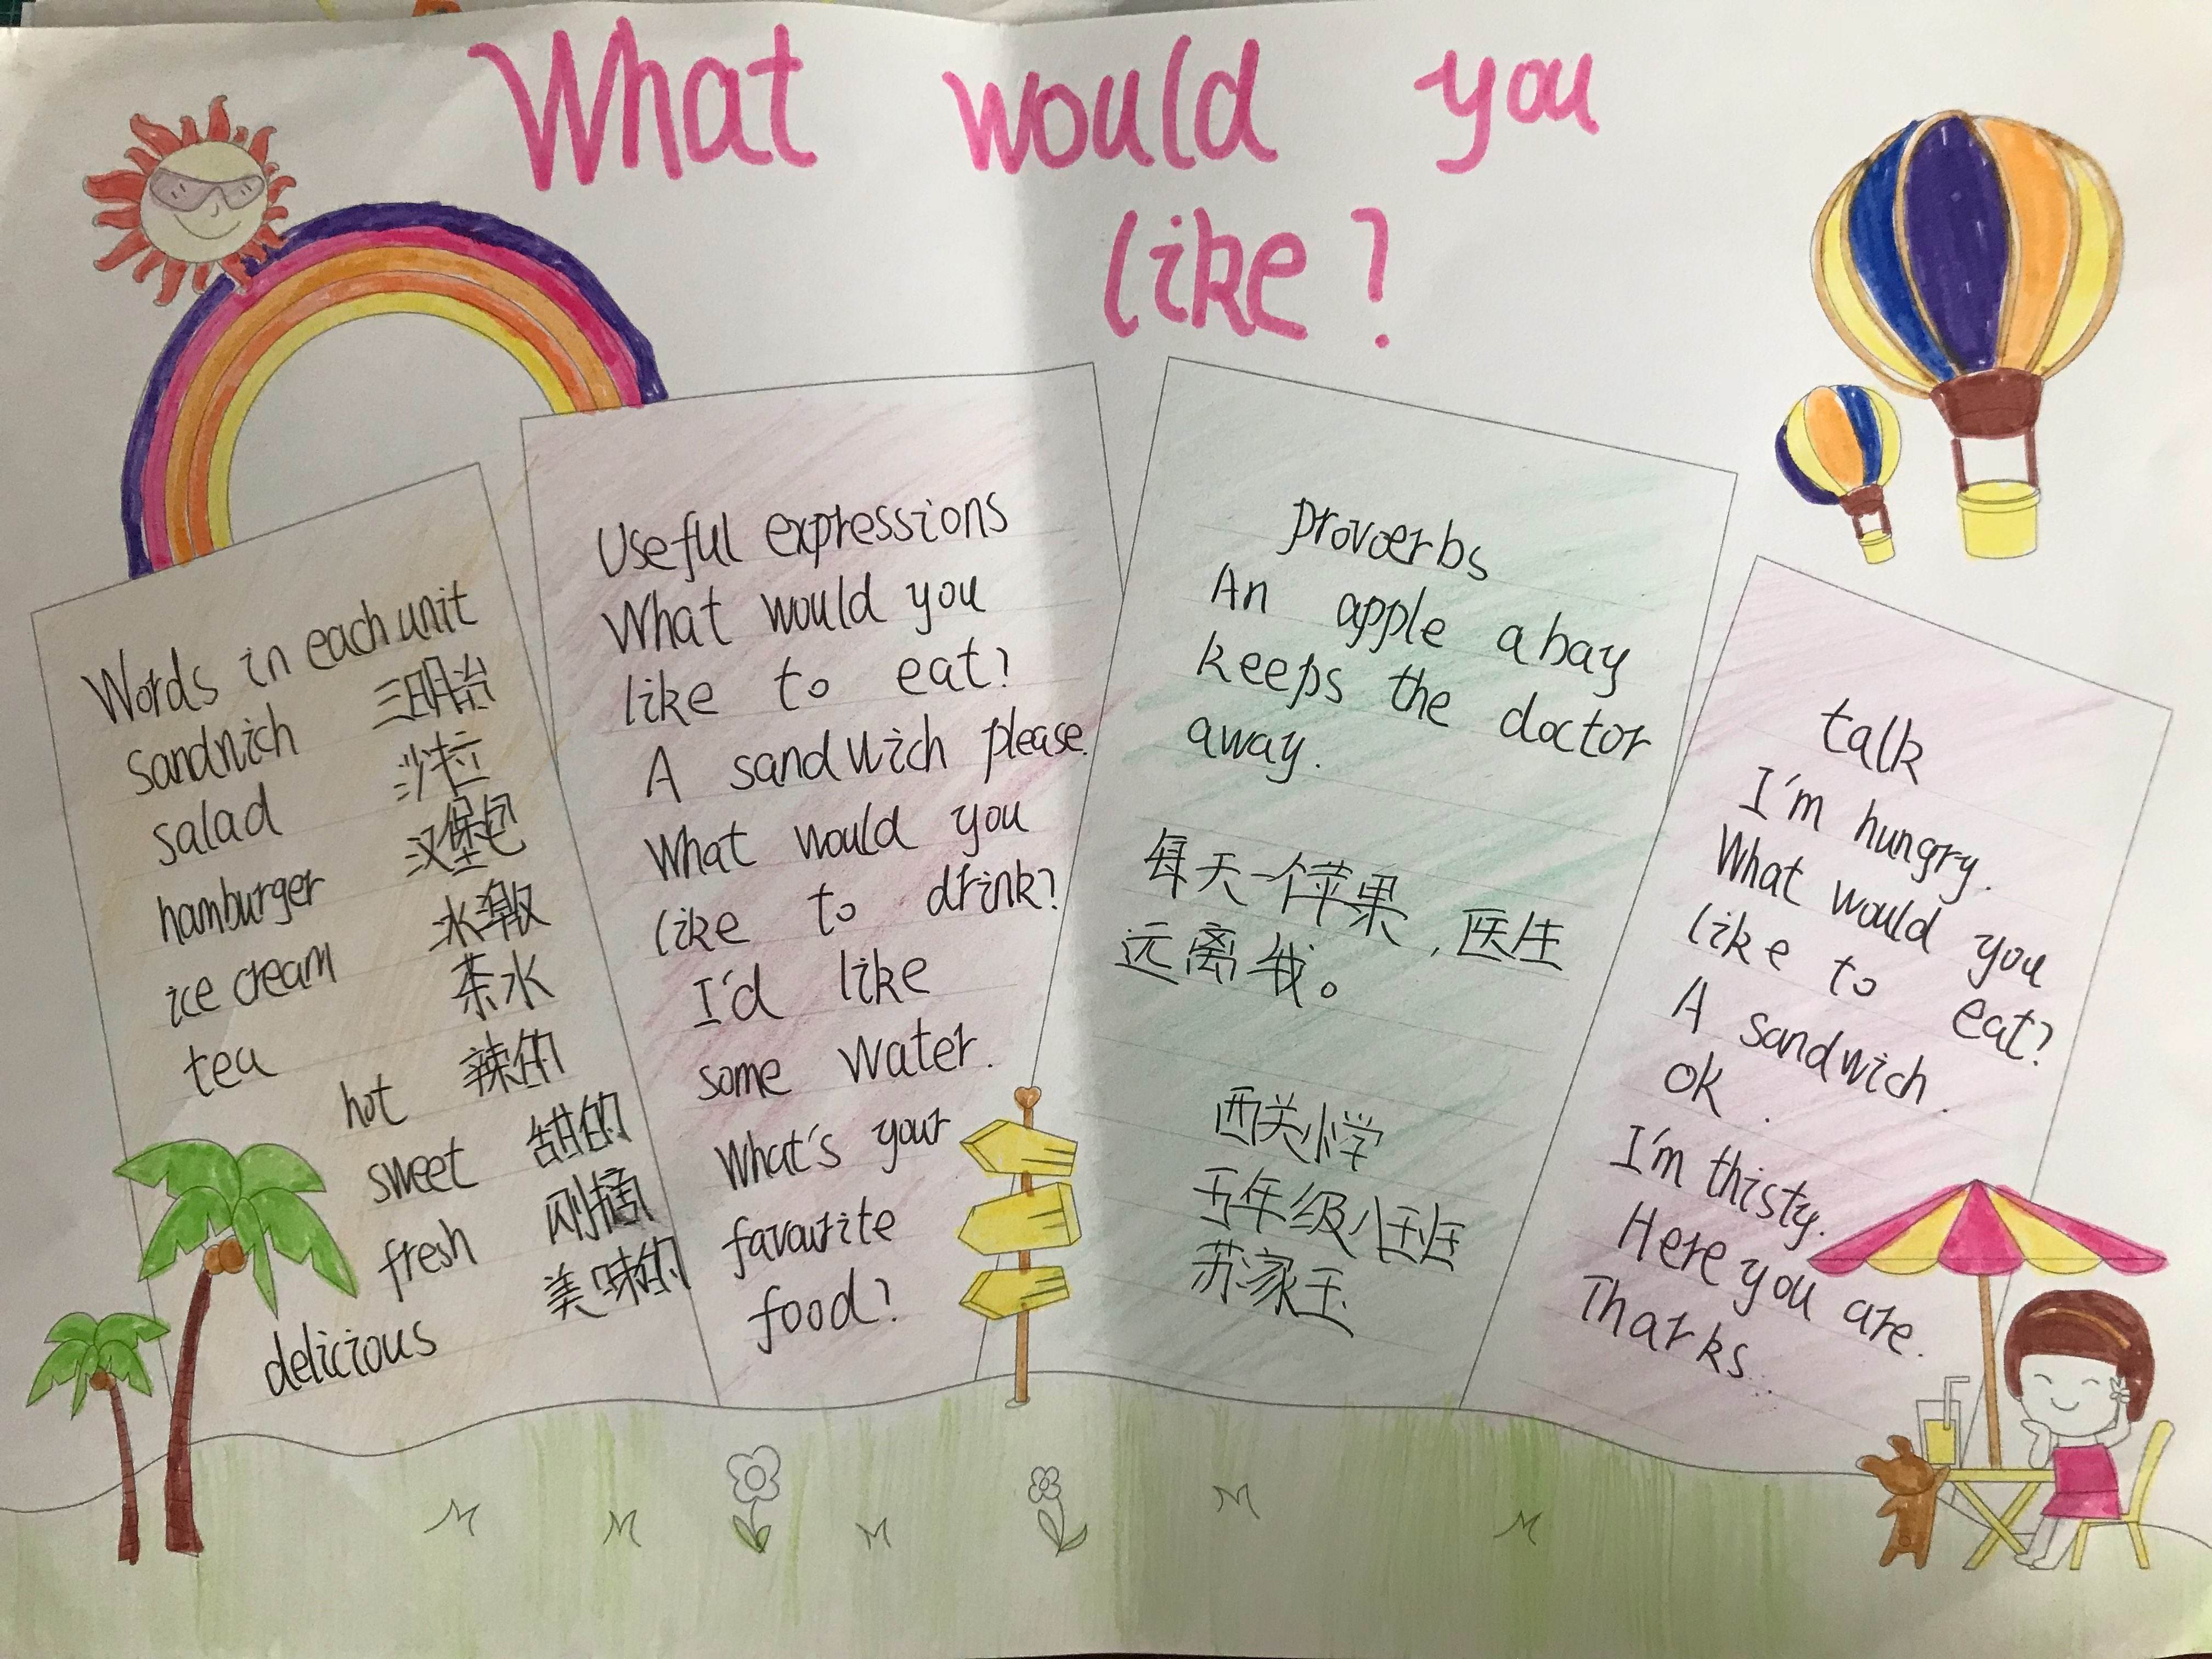 What would you
like?
Words in each unit
sandwich 三明治
salad 沙拉
hamburger 汉堡包
ice cream 冰激
tea 茶水
hot 辣的
sweet 甜的
fresh 刚摘
delicious 美味的
Useful expressions
What would you
like to eat?
A sandwich please.
What would you
like to drink?
I'd like
some water.
What's your
favourite
food?
proverbs
An apple a bay
keeps the doctor
away.
每天一个苹果，医生
远离我。
西关小学
五年级八班
苏家玉
talk
I'm hungry.
What would you
like to eat?
A sandwich.
ok.
I'm thisty.
Here you are.
Tharks..